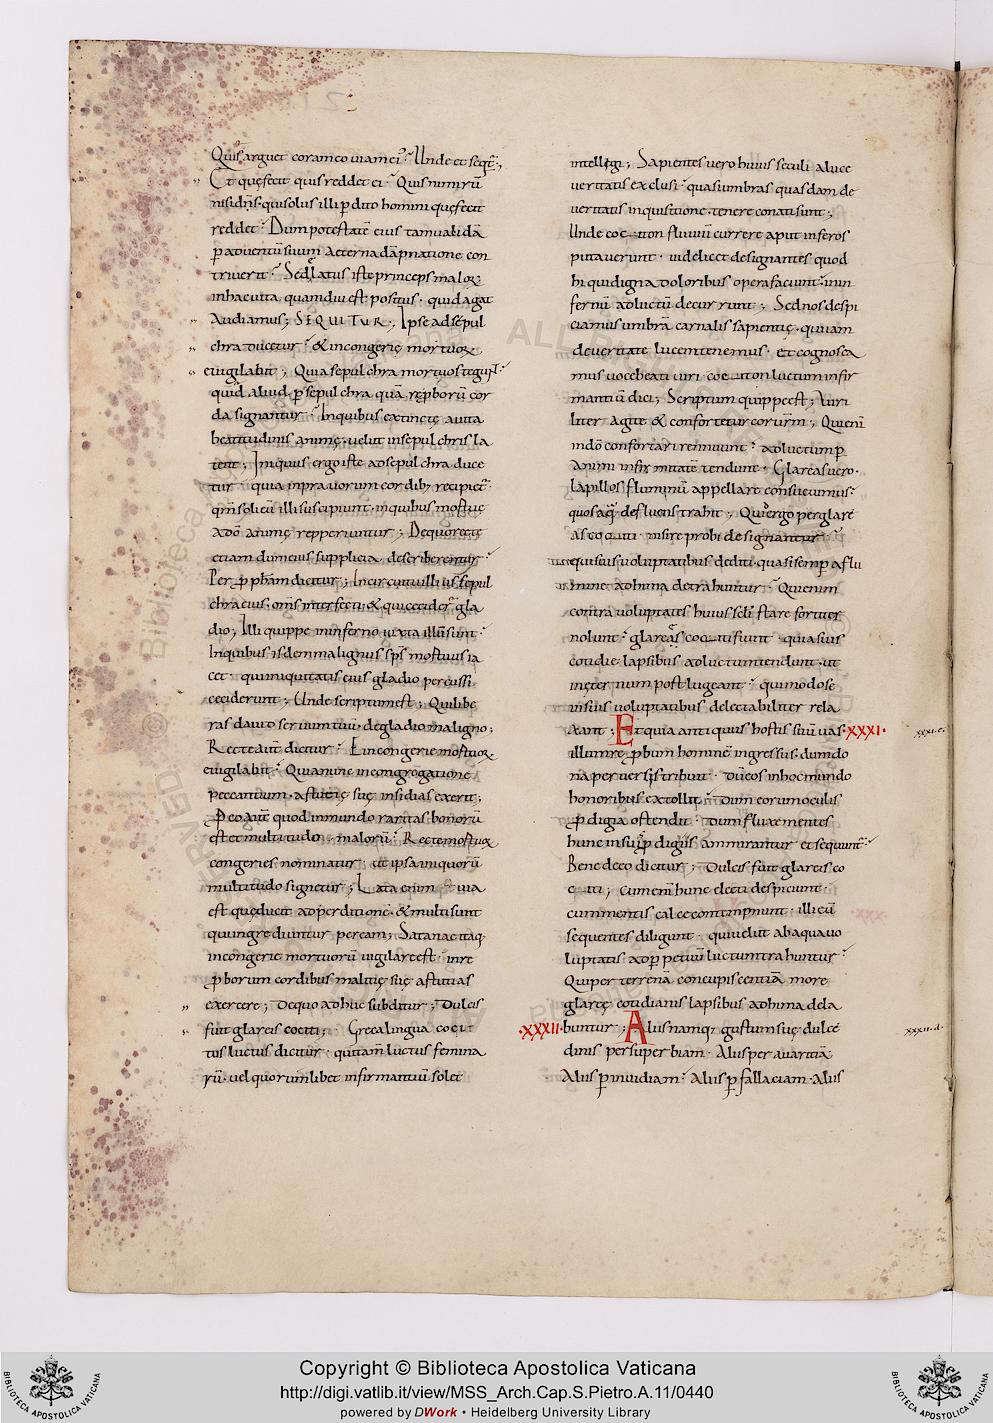 Quis arguet coram eo viam ei(us)? Unde et seq(ui)t(ur);
Et quę fecit quis reddet ei? Quis nimirū
nisi dn̄s. qui solus illi p̄dito homini quę fecit
reddet? Dum potestatē eius tam ualidā
p aduentū suum aeterna dāpnatione con
triuerit? Sed elatus iste princeps maloꝝ
in hac uita quamdiu est positus. quid agat
Audiamus; SEQUITUR; Ipse ad sepul
chra ducetur. & in congerię mortuoꝝ
euigilabit; Quia sepulchra mortuos tegunt.
quid aliud. p sepulchra quā reproborū cor
da signantur? In quibus extinctę a uita
beatitudinis animę. uelut in sepulchris la
tent; Iniquus ergo iste ad sepulchra duce
tur. quia in prauorum cordib; recipiet(ur).
qm̄ soli eū illi suscipiunt. in quibus mortuę
a dō animę repperiuntur; De quo recte
etiam dum eius supplicia describerentur.
Per p̄ph&am dicitur; In circuitu illius sepul
chra eius. om̄s interfecti & qui cecider(unt) gla
dio; Illi quippe in inferno iuxta illū sunt.
In quibus isdem malignus sp̄s mortuus ia
cet. qui iniquitatis eius gladio percussi
ceciderunt; Unde scriptum est; Qui libe
ras dauid seruum tuū. de gladio maligno;
Recte autē dicitur? Et in congerie mortuoꝝ
euigilabit? Quia nunc in congregatione
peccantium. astutię suę insidias exerit;
Pro eo autē quod in mundo raritas bonorū
est et multitudo malorū? Recte mortuoꝝ
congeries nominatur. ut ipsa iniquorū
multitudo signetur; Lata enim ē uia
est quę ducit ad perditionē. & multi sunt
qui ingrediuntur per eam; Satanae itaq;
in congerie mortuorū uigilare est. in re
proborum cordibus malitię suę astutias
exercere; De quo adhuc subditur; Dulcis
fuit glareis cociti; Greca lingua coci
tus luctus dicitur. qui tam̄ luctus femina
rū. uel quorumlibet infirmantiū solet
intellegi; Sapientes uero huius seculi a luce
ueritatis exclusi. quasi umbras quasdam de
ueritatis inquisitione. tenere conati sunt;
Unde cociton fluuiū currere aput inferos
putauerunt. uidelicet designantes quod
hi qui digna doloribus opera faciunt. in in
fernū ad luctū decurrunt; Sed nos despi
ciamus umbrā carnalis sapientię. qui iam
de ueritate lucem tenemus. et cognosca
mus uoce beati uiri. cociton luctum infir
mantiū dici; Scriptum quippe est; Uiri
liter agite & confortetur cor ur̄m; Qui eni
in dō confortari rennuunt. ad luctum p
animi infirmitatē tendunt. Glareas uero.
lapillos fluminū appellare consueuimus.
quos aq(ua) defluens trahit; Quid ergo per glare
as cociti. nisi reprobi designantur
qui suis uoluptatibus dediti. quasi semp a flu
mine ad hima detrahuntur. Qui enim
contra uoluptates huius scl̄i stare fortiter
nolunt. glareę cociti fiunt. qui a suis
cotidie lapsibus ad luctum tendunt. ut
in ęternum post lugeant. qui modo se
in suis uoluptatibus delectabiliter rela
xant; Et quia antiquus hostis suū uas. XXXI.
illum reprobum hominē ingressus. dum do
na peruersis tribuit. dū eos in hoc mundo
honoribus extollit. dum eorum oculis
prodigia ostendit. dum fluxę mentes
hunc in suis p̄digiis ammirantur et sequunt(ur).
Bene de eo dicitur; Dulcis fuit glareis co
citi; Cum enī hunc electi despiciunt.
cum mentis calce contempnunt. illi eū
sequentes diligunt. qui uelut ab aqua uo
luptatis ad perpetuū luctum trahuntur.
Qui per terrenā concupiscentiā more
glareę cotidianis lapsibus ad hima dela
.XXXII. buntur; Aliis namq; gustum suę dulce
dinis per superbiam. Aliis per auaritiā
Aliis p inuidiam. Aliis p fallaciam. Aliis
xxxi.c.
xxxii.d.
Copyright © Biblioteca Apostolica Vaticana
http://digi.vatlib.it/view/MSS_Arch.Cap.S.Pietro.A.11/0440
powered by DWork • Heidelberg University Library
BIBLIOTECA APOSTOLICA VATICANA
BIBLIOTECA APOSTOLICA VATICANA